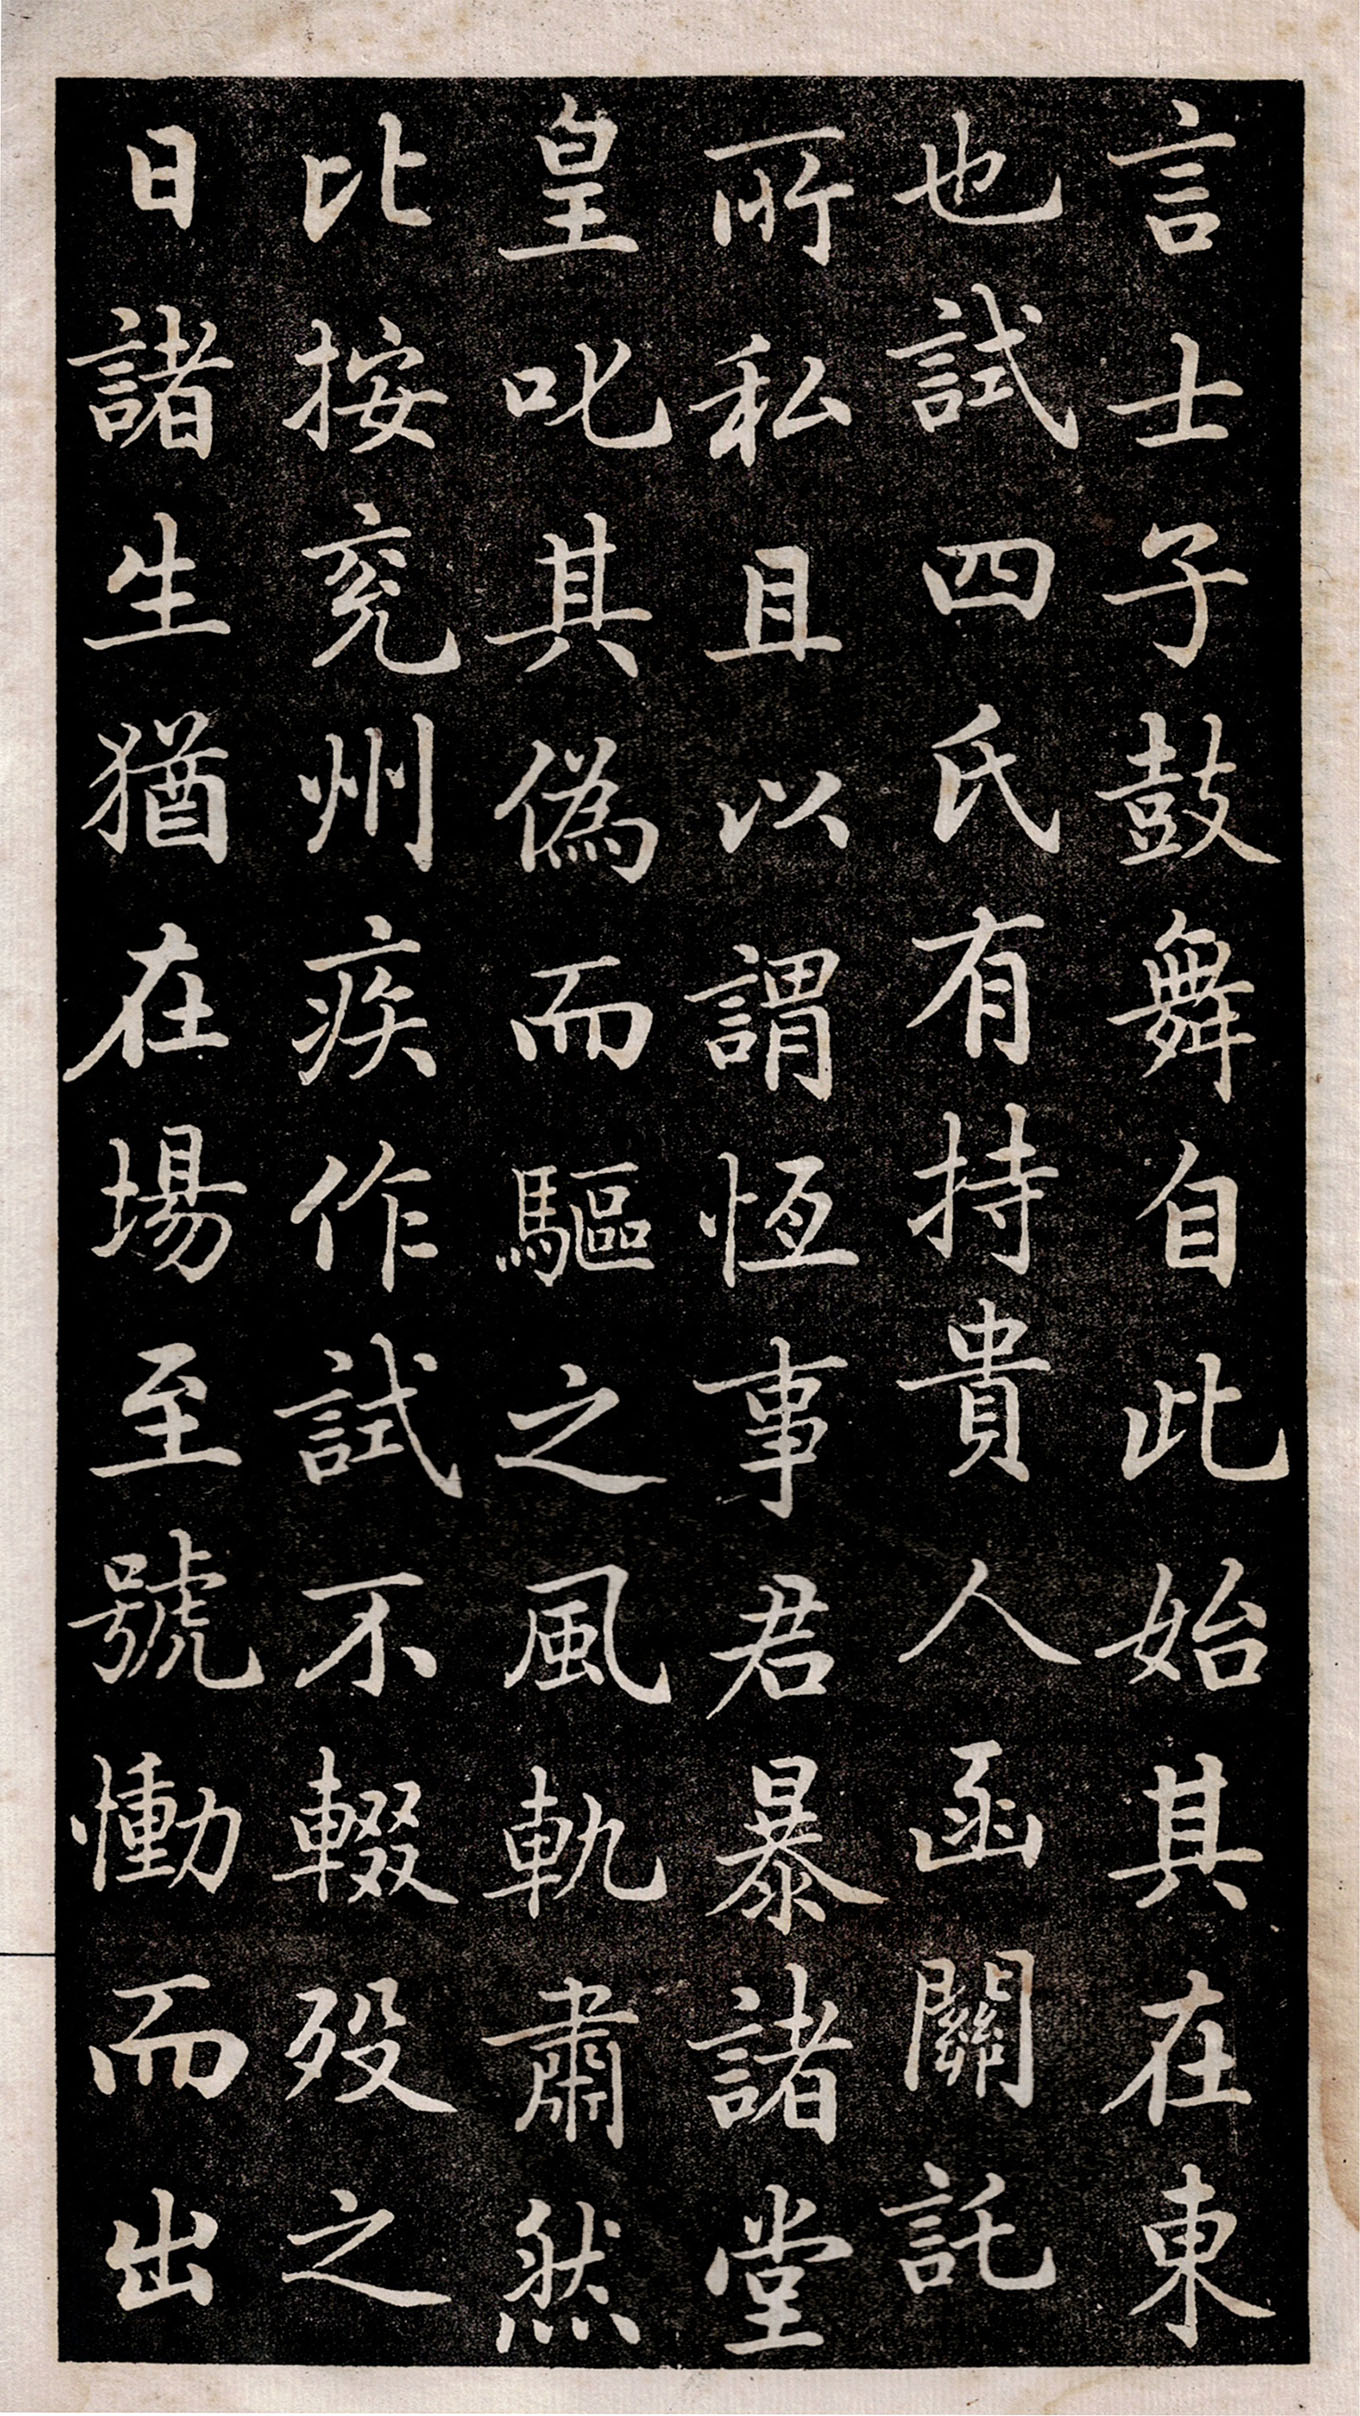 言士子鼓舞自此始其在東
也試四氏有持貴人函關託
所私且以謂恆事君暴諸堂
皇叱其偽而驅之風軌肅然
比按兖州疾作試不輟歿之
日諸生猶在場至號慟而出